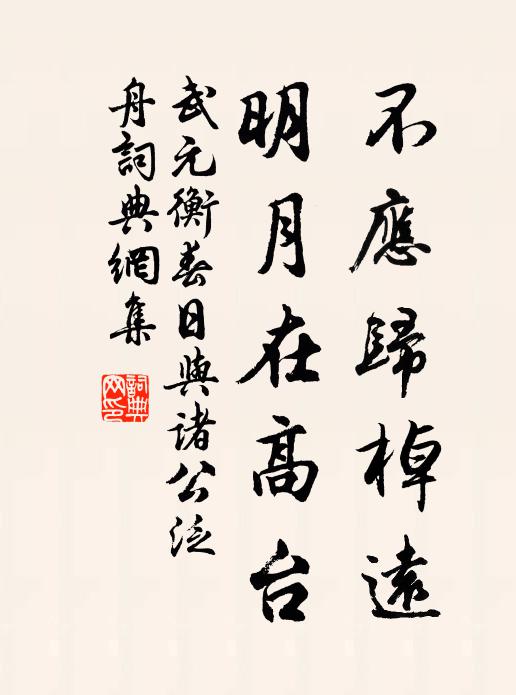 不應歸棹遠
明月在高台
武元衡春日與諸公泛
舟詞典網集
詞典網印